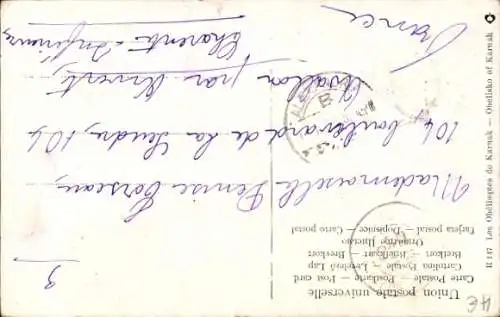 Union postale universelle
Carte Postale — Postkarte — Post card
Cartolina Postale — Levelező Lap
Brefkort — Briefkaart — Brevkort
Dopisnice — Carto postal
Tarjeta postal
R 147 Les Obélisques de Karnak — Obelisks of Karnak
3
Mademoiselle Denise
104 boulevard de la Seudre, 104
par Arvert
Charente-Inférieure
France
B
4E